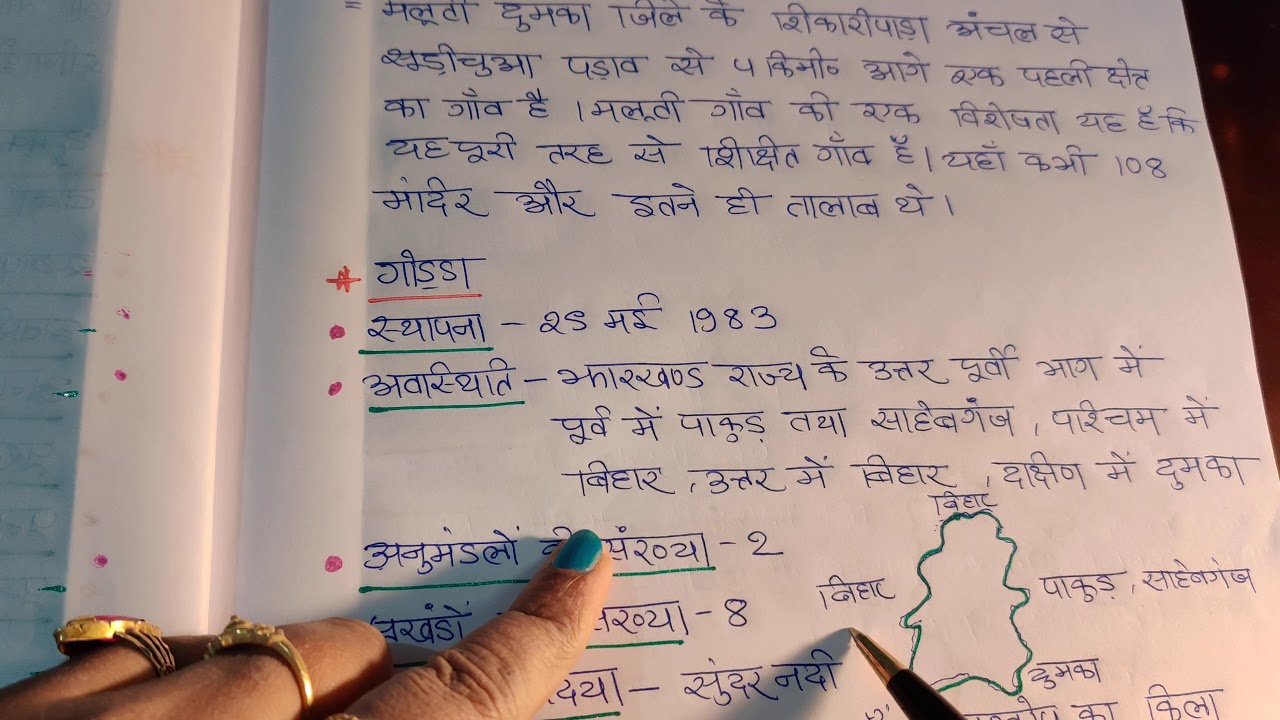 = मलूटी दुमका जिले के शिकारीपाड़ा अंचल से
सूड़ीचुआ पड़ाव से ५ किमी० आगे एक पहली क्षेत्र
का गाँव है । मलूती गाँव की एक विशेषता यह है कि
यह पूरी तरह से शिक्षित गाँव है । यहाँ कभी 108
मंदिर और इतने ही तालाब थे ।
* गोड्डा
स्थापना - २५ मई 1983
अवस्थिति - झारखण्ड राज्य के उत्तर पूर्वी भाग में
पूर्व में पाकुड़ तथा साहेबगंज , पश्चिम में
बिहार , उत्तर में बिहार , दक्षिण में दुमका
बिहार
अनुमंडलों की संख्या - 2
बिहार
पाकुड़ , साहेबगंज
प्रखंडों संख्या - 8
दुमका
सुंदर नदी
का किला